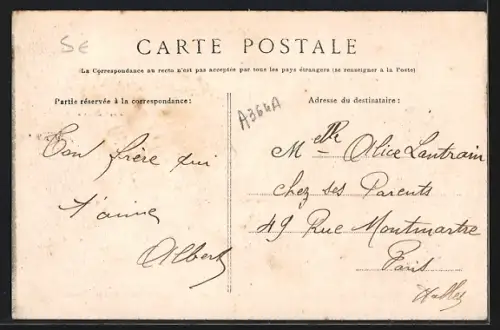 5e
CARTE POSTALE
(La Correspondance au recto n'est pas acceptée par tous les pays étrangers (se renseigner à la Poste)
Partie réservée à la correspondance :
Ton frère qui
t'aime
Albert
A364A
Adresse du destinataire :
Melle Alice Lautrain
Chez ses Parents
49 Rue Montmartre
Paris
Halles